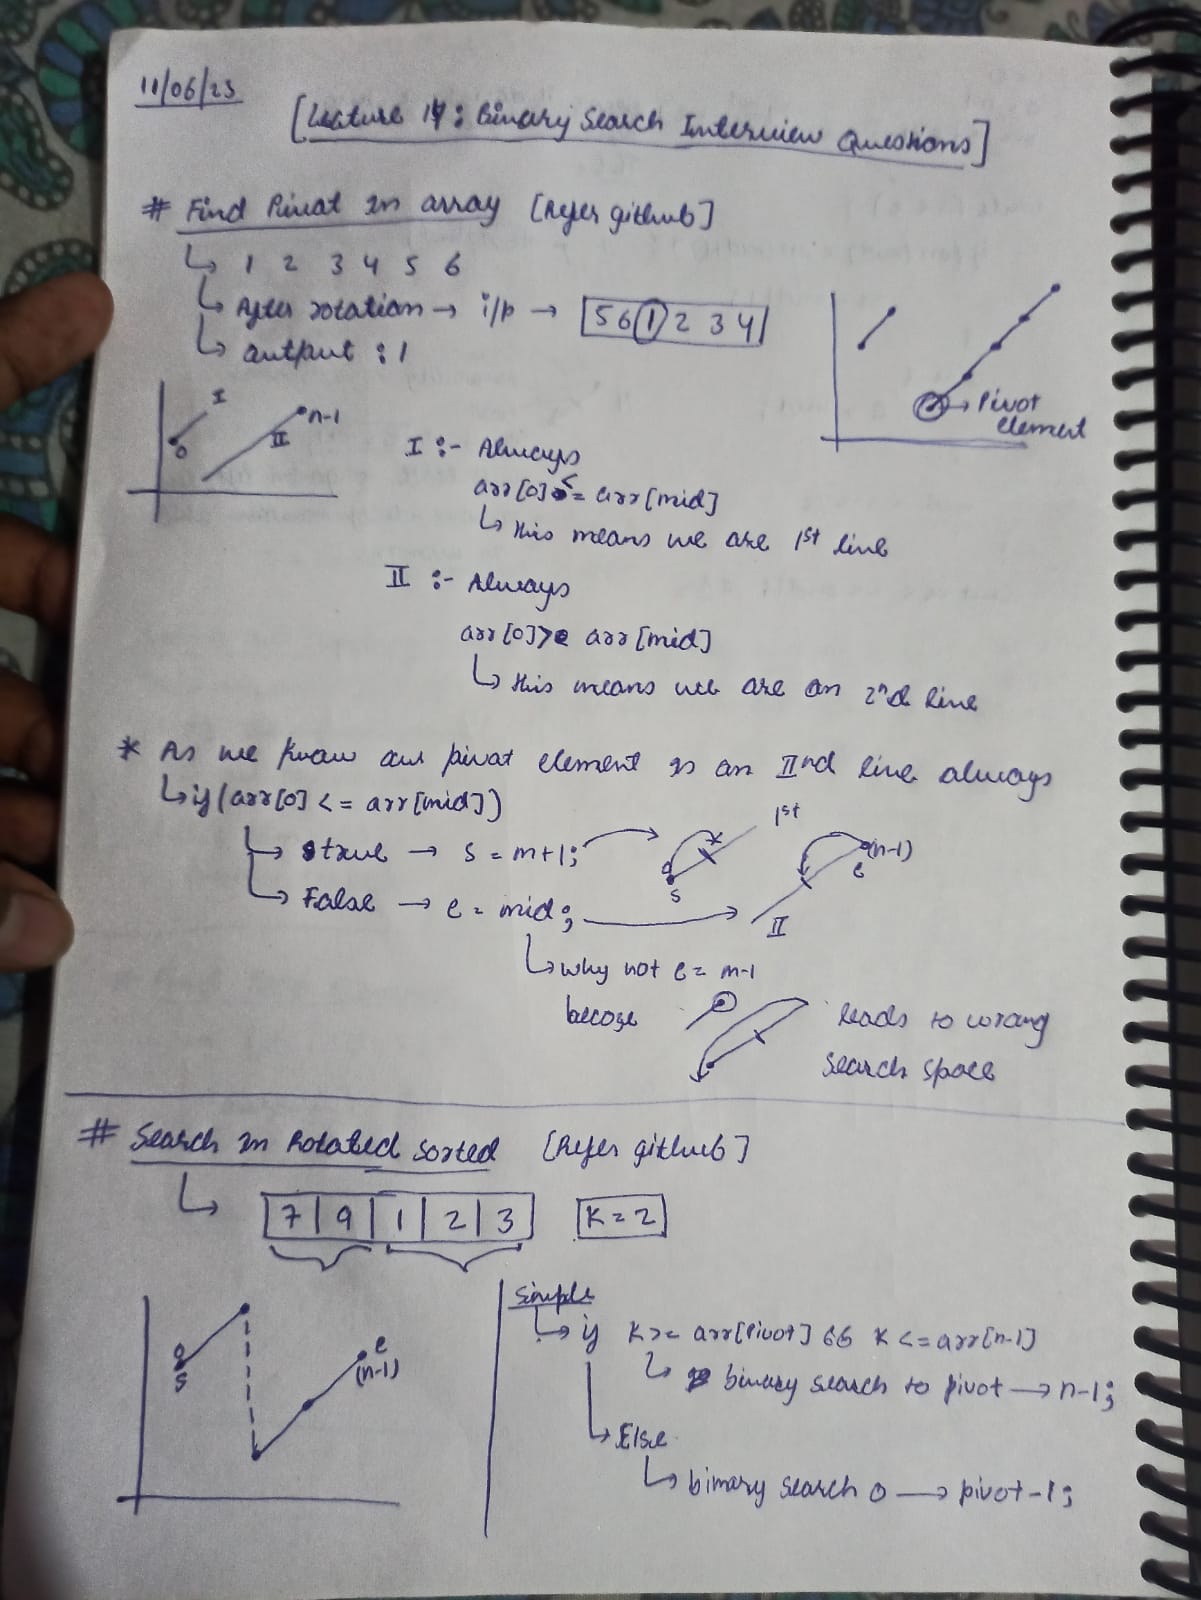 11/06/23
[Lecture 14: Binary Search Interview Questions]
# Find Pivot in array [Refer github]
↳ 1 2 3 4 5 6
↳ After rotation → i/p → [5 6 1 2 3 4]
↳ output : 1
→ Pivot element
I
0
II
n-1
I :- Always
arr[0] <= arr[mid]
↳ this means we are 1st line
II :- Always
arr[0] > arr[mid]
↳ this means we are on 2nd line
* As we know our pivot element is on IInd line always
↳ if (arr[0] <= arr[mid])
↳ true → s = m+1;
1st
0
s
↳ False → e = mid;
(n-1)
e
II
↳ why not e = m-1
becoze
leads to wrong
search space
# Search in Rotated sorted [Refer github]
↳ 7 | 9 | 1 | 2 | 3
K = 2
0
s
e
(n-1)
Simple
↳ if K >= arr[Pivot] && K <= arr[n-1]
↳ binary search to pivot → n-1;
↳ Else
↳ binary search 0 → pivot-1;